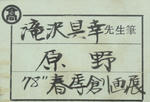 髙
滝沢具幸先生筆
原野
'78"春季創画展